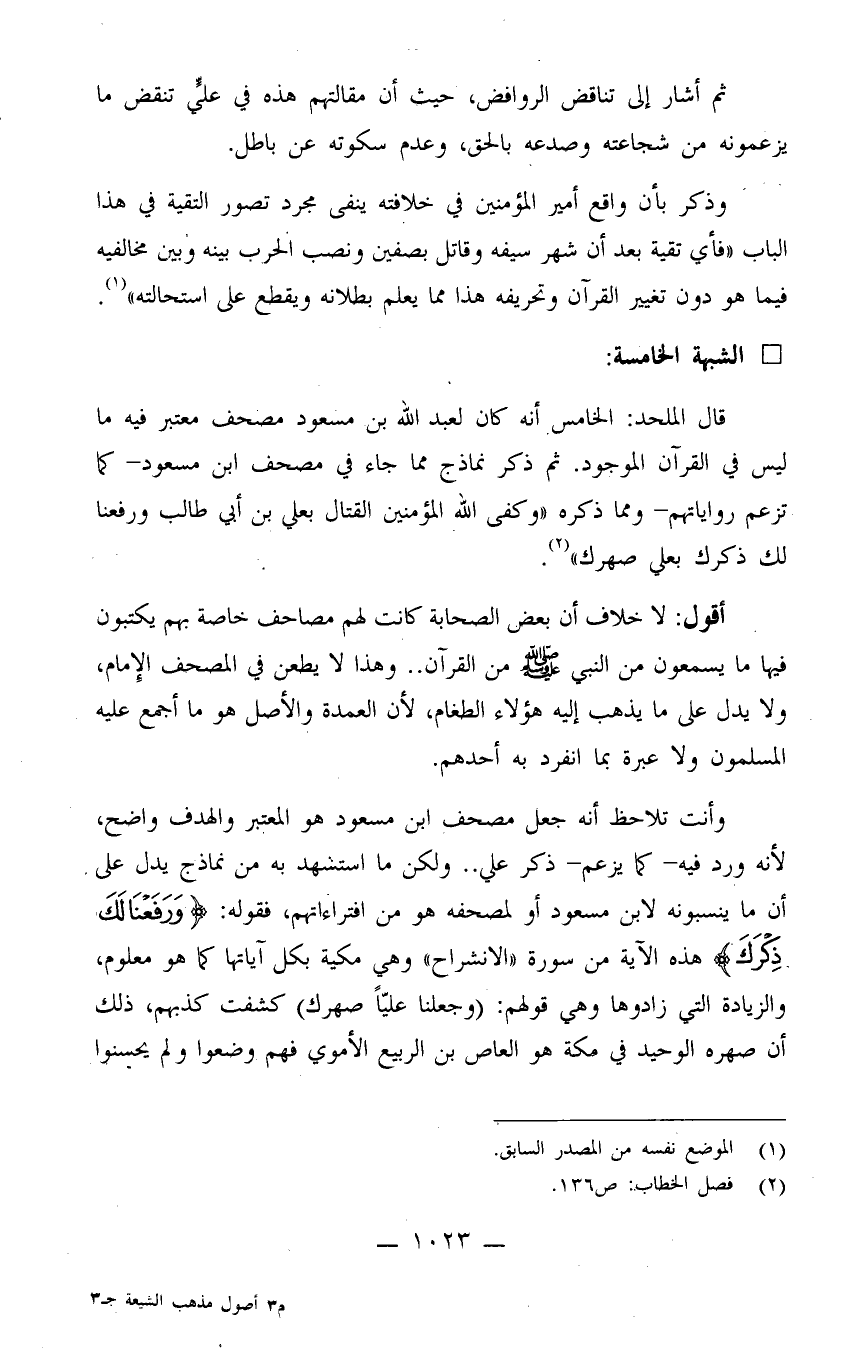 ثم أشار إلى تناقض الروافض، حيث أن مقالتهم هذه في عليٍّ تنقض ما
يزعمونه من شجاعته وصدعه بالحق، وعدم سكوته عن باطل.
وذكر بأن واقع أمير المؤمنين في خلافته ينفى مجرد تصور التقية في هذا
الباب «فأي تقية بعد أن شهر سيفه وقاتل بصفين ونصب الحرب بينه وبين مخالفيه
فيما هو دون تغيير القرآن وتحريفه هذا مما يعلم بطلانه ويقطع على استحالته»(١).
□ الشبهة الخامسة:
قال الملحد: الخامس أنه كان لعبد الله بن مسعود مصحف معتبر فيه ما
ليس في القرآن الموجود. ثم ذكر نماذج مما جاء في مصحف ابن مسعود– كما
تزعم رواياتهم– ومما ذكره «وكفى الله المؤمنين القتال بعلي بن أبي طالب ورفعنا
لك ذكرك بعلي صهرك»(٢).
أقول: لا خلاف أن بعض الصحابة كانت لهم مصاحف خاصة بهم يكتبون
فيها ما يسمعون من النبي ﷺ من القرآن.. وهذا لا يطعن في المصحف الإمام،
ولا يدل على ما يذهب إليه هؤلاء الطغام، لأن العمدة والأصل هو ما أجمع عليه
المسلمون ولا عبرة بما انفرد به أحدهم.
وأنت تلاحظ أنه جعل مصحف ابن مسعود هو المعتبر والهدف واضح،
لأنه ورد فيه– كما يزعم– ذكر علي.. ولكن ما استشهد به من نماذج يدل على
أن ما ينسبونه لابن مسعود أو لمصحفه هو من افتراءاتهم، فقوله: ﴿وَرَفَعْنَا لَكَ
ذِكْرَكَ﴾ هذه الآية من سورة «الانشراح» وهي مكية بكل آياتها كما هو معلوم،
والزيادة التي زادوها وهي قولهم: (وجعلنا عليّاً صهرك) كشفت كذبهم، ذلك
أن صهره الوحيد في مكة هو العاص بن الربيع الأموي فهم وضعوا ولم يحسنوا
(١) الموضع نفسه من المصدر السابق.
(٢) فصل الخطاب: ص١٣٦.
— ١٠٢٣ —
م٣ أصول مذهب الشيعة جـ٣